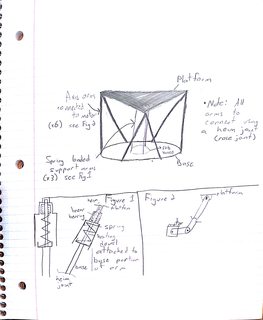 Platform
Axis arms
connected
to motor
(x6) see Fig 2
• Note: All
arms to
connect using
a heim joint
(rose joint)
Spring loaded
support arms
(x3) see Fig 1
Base
Figure 1
Figure 2
linear
bearing
spring
dowel
attached to
base portion
of arm
base
heim
joint
platform
motor